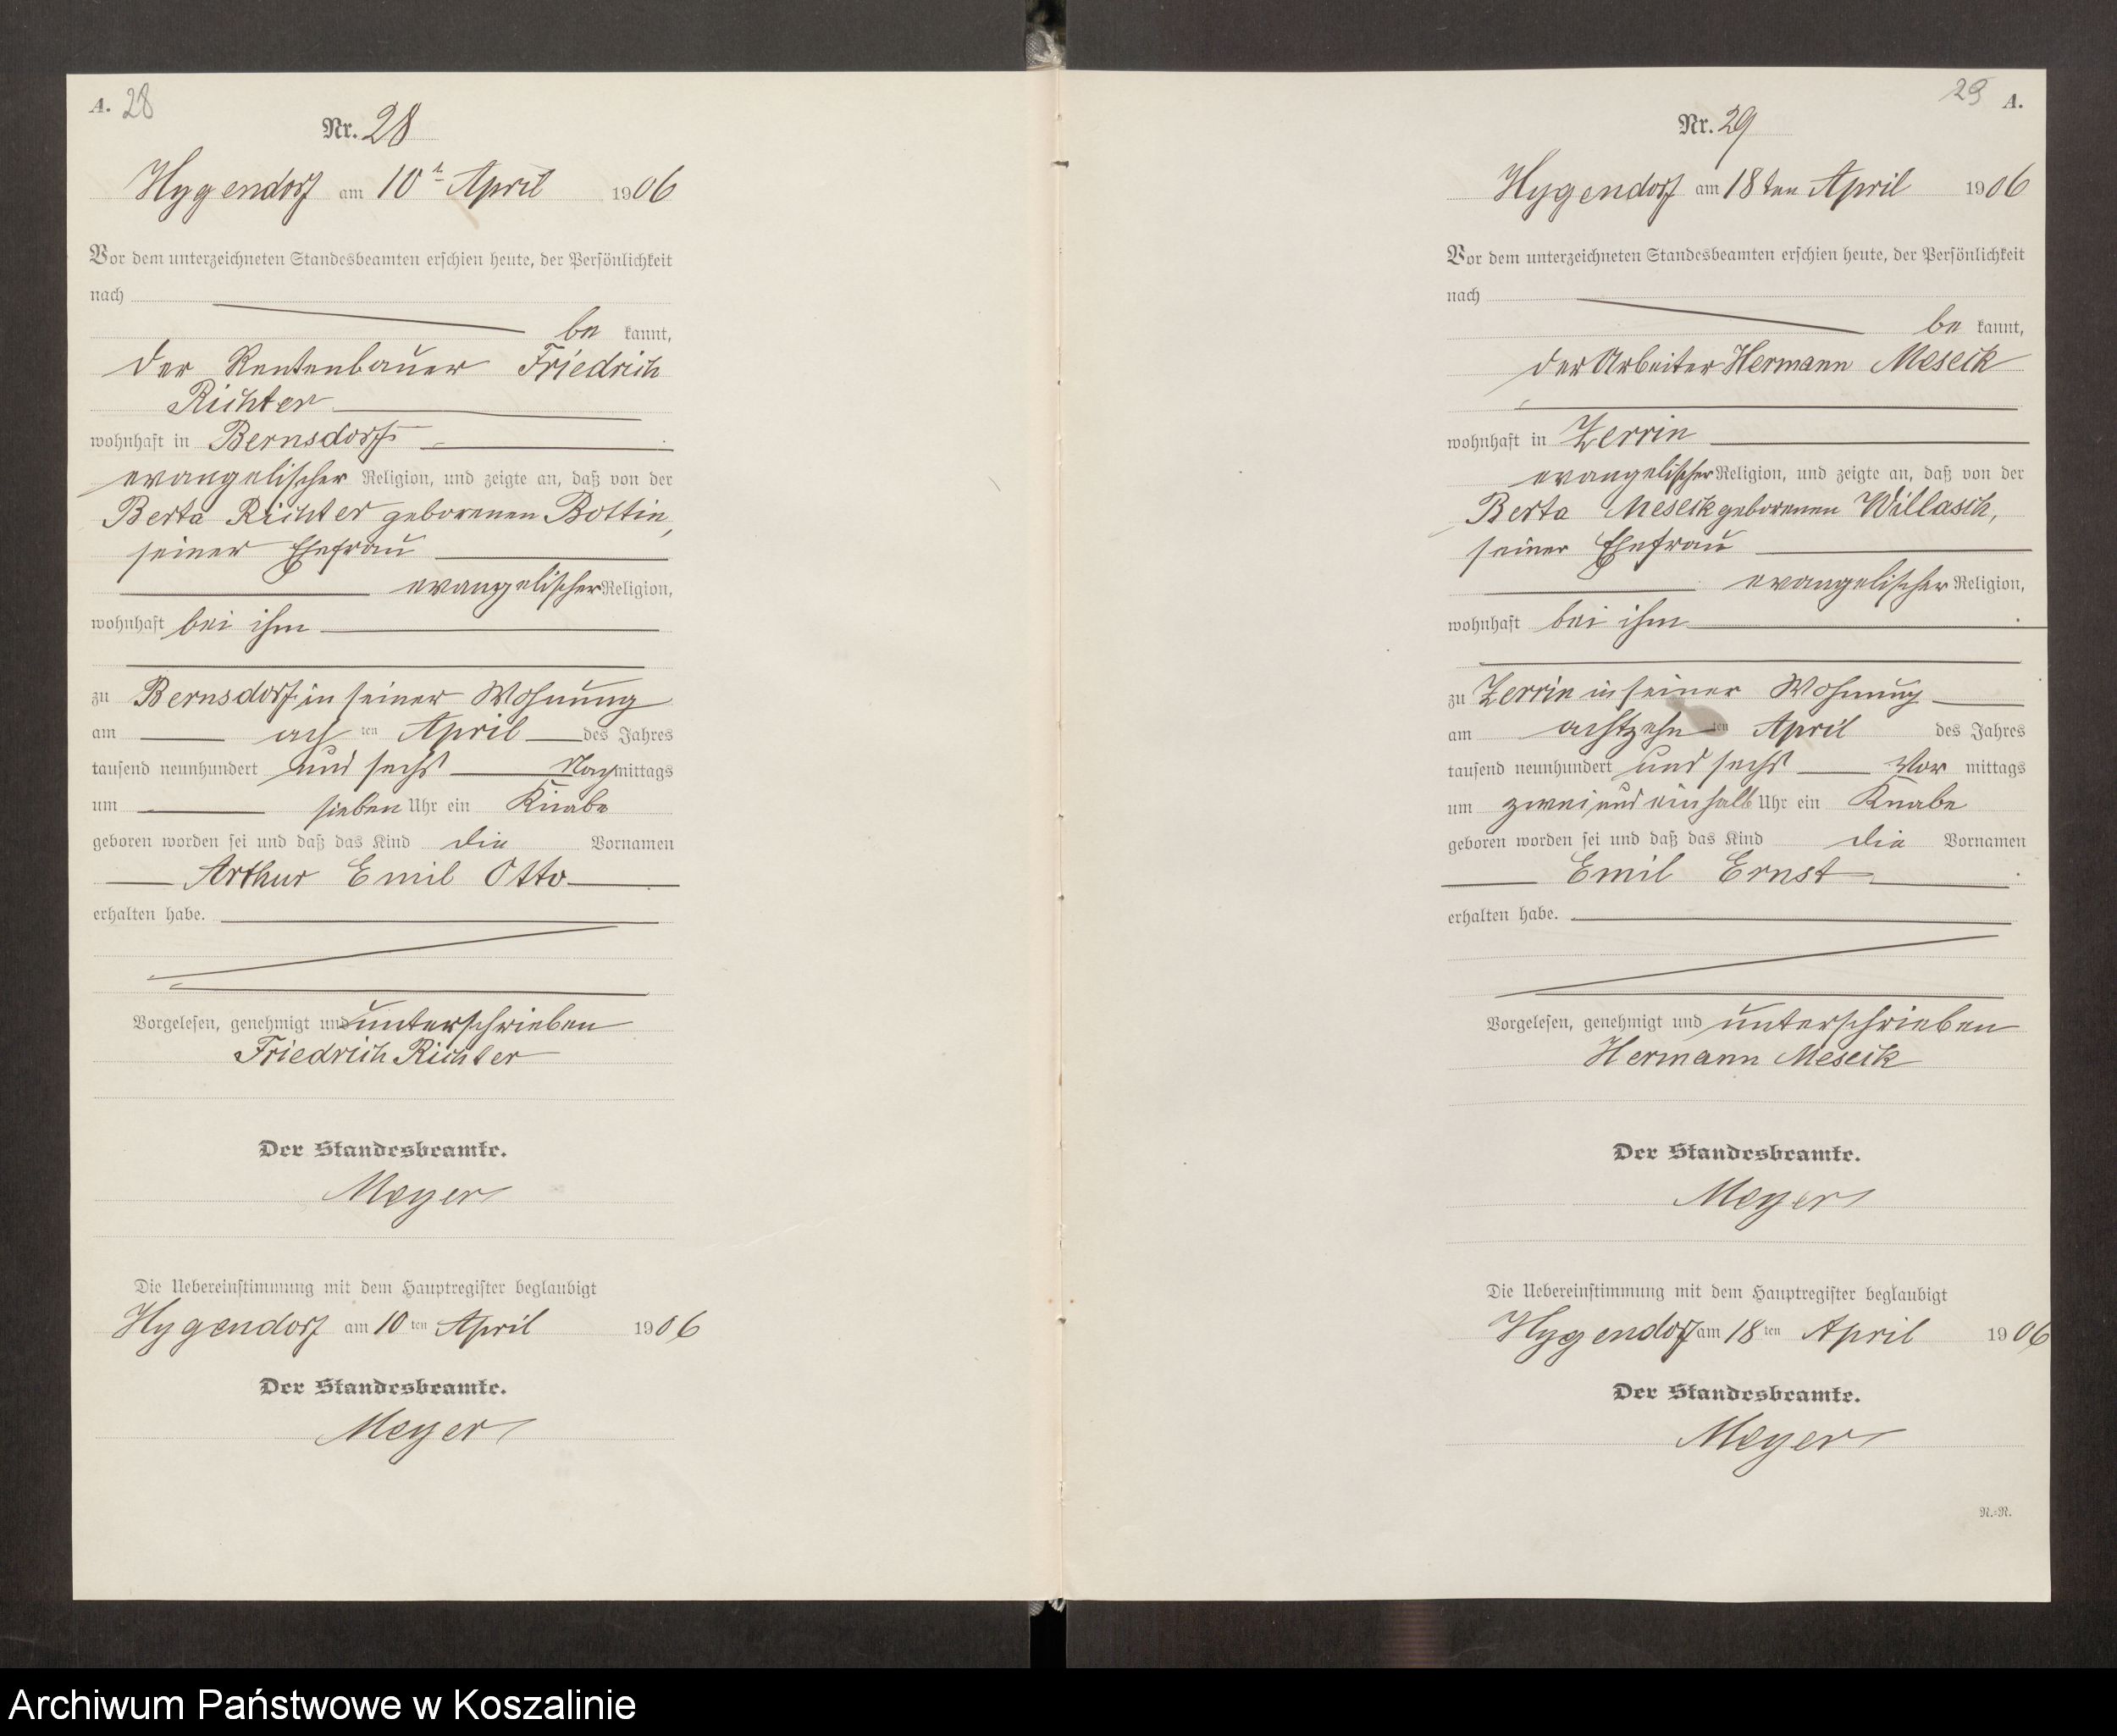 A. 28
Nr. 28
Hygendorf am 10t April 1906
Vor dem unterzeichneten Standesbeamten erschien heute, der Persönlichkeit
nach
be kannt,
der Rentenbauer Friedrich
Richter
wohnhaft in Bernsdorf
evangelischer Religion, und zeigte an, daß von der
Berta Richter geborenen Bottin,
seiner Ehefrau
evangelischer Religion,
wohnhaft bei ihm
zu Bernsdorf in seiner Wohnung
am ach ten April des Jahres
tausend neunhundert und sechs Nachmittags
um sieben Uhr ein Knabe
geboren worden sei und daß das Kind die Vornamen
Arthur Emil Otto
erhalten habe.
Vorgelesen, genehmigt und unterschrieben
Friedrich Richter
Der Standesbeamte.
Meyer
Die Uebereinstimmung mit dem Hauptregister beglaubigt
Hygendorf am 10 ten April 1906
Der Standesbeamte.
Meyer
29 A.
Nr. 29
Hygendorf am 18ten April 1906
Vor dem unterzeichneten Standesbeamten erschien heute, der Persönlichkeit
nach
be kannt,
der Arbeiter Hermann Meseck
wohnhaft in Zerrin
evangelischer Religion, und zeigte an, daß von der
Berta Meseck geborenen Willasch,
seiner Ehefrau
evangelischer Religion,
wohnhaft bei ihm
zu Zerrin in seiner Wohnung
am achtzehn ten April des Jahres
tausend neunhundert und sechs Vor mittags
um zwei und ein halb Uhr ein Knabe
geboren worden sei und daß das Kind die Vornamen
Emil Ernst
erhalten habe.
Vorgelesen, genehmigt und unterschrieben
Hermann Meseck
Der Standesbeamte.
Meyer
Die Uebereinstimmung mit dem Hauptregister beglaubigt
Hygendorf am 18 ten April 1906
Der Standesbeamte.
Meyer
R.=R.
Archiwum Państwowe w Koszalinie